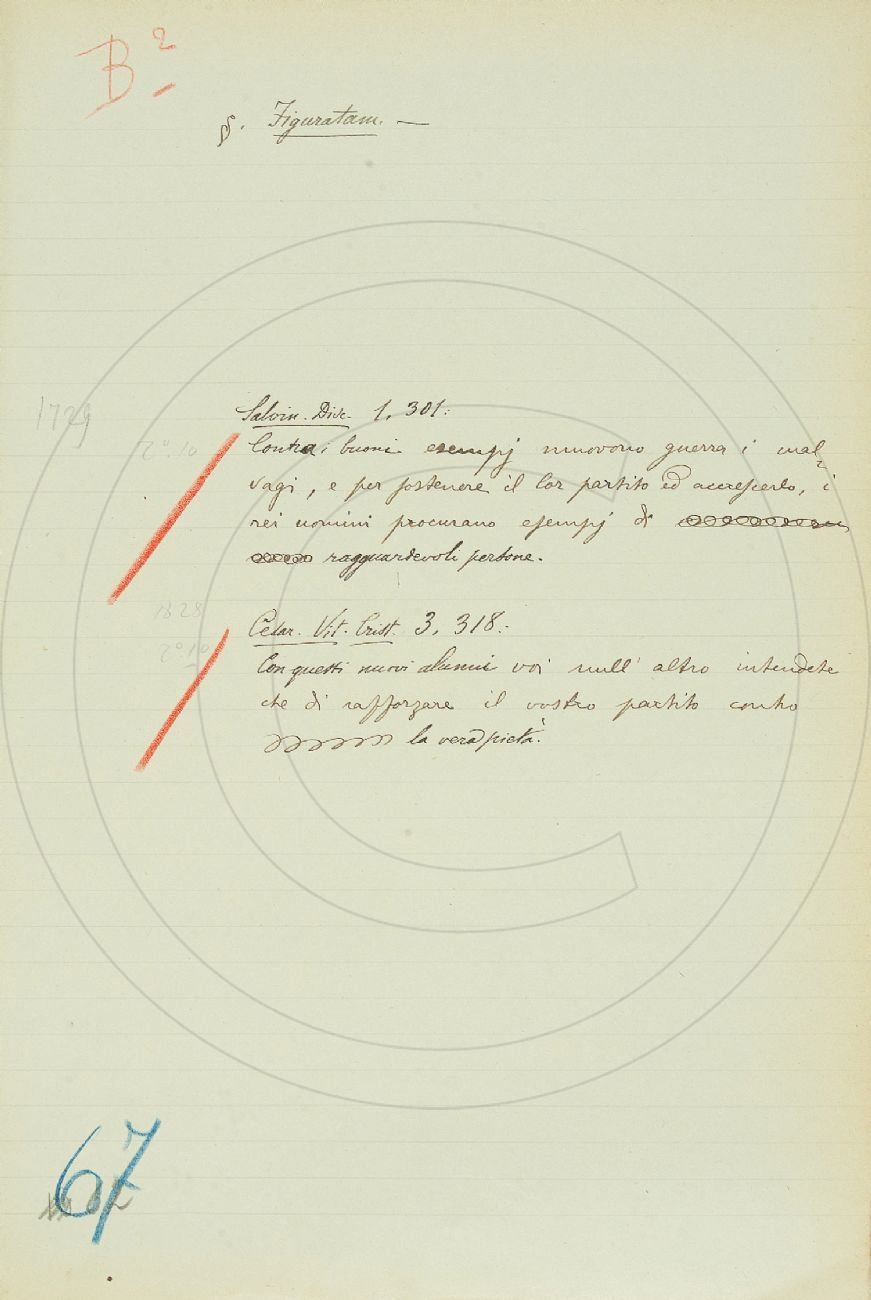 B²
§. Figuratam. —
1729
Salvin. Disc. 1, 301:
2° 10
Contra i buoni esempj muovono guerra i mal-
vagi, e per sostenere il lor partito ed accrescerlo, i
rei uomini procurano esempj di
ragguardevoli persone.
1828
Cesar. Vit. Crist. 3, 318:
2° 10
Con questi nuovi alunni voi null' altro intendete
che di rafforzare il vostro partito contro
la vera pietà.
67